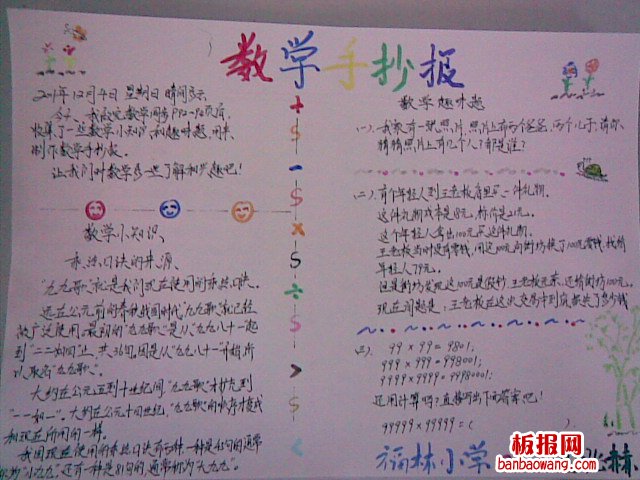 数学手抄报
2011年12月4日 星期日 晴间多云
今天,我感觉数学同步P92-93页后,
收集了一些数学小知识和趣味题,用来
制作数学手抄报。
让我们对数学多些了解和兴趣吧!
数学小知识
乘法口诀的来源
"九九歌"就是我们现在使用的乘法口诀。
远在公元前的春秋战国时代"九九歌"就已经
被广泛使用。最初的"九九歌"是从"九九八十一"起
到"二二如四"止,共36句。因是从"九九八十一"开始,所
以取名"九九歌"。
大约在公元五到十世纪间,"九九歌"才扩充到
"一一如一"。大约在公元十四世纪,"九九歌"的顺序才变成
和现在所用的一样。
我国现在使用的乘法口诀有两种,一种是45句的,通常
称为"小九九",还有一种是81句的,通常称为"大九九"。
+
$
-
$
×
S
÷
$
>
$
<
数学趣味题
(一)、我家有一张照片,照片上有两个爸爸,两个儿子,请你
猜猜照片上有几个人?都是谁?
(二)、有个年轻人到王老板店里买一件礼物,
这件礼物成本是18元,标价是21元。
这个年轻人拿出100元买这件礼物,
王老板当时没有零钱,用这100元向街坊换了100元零钱,找给
年轻人79元。
但是街坊发现这100元是假钞,王老板无奈,还给街坊100元。
现在问题是:王老板在这次交易中到底损失了多少钱
(三)、99×99=9801;
999×999=998001;
9999×9999=99980001;
还用计算吗?直接写出下面答案吧!
99999×99999=( )
福林小学
林
板报网
banbaowang.com